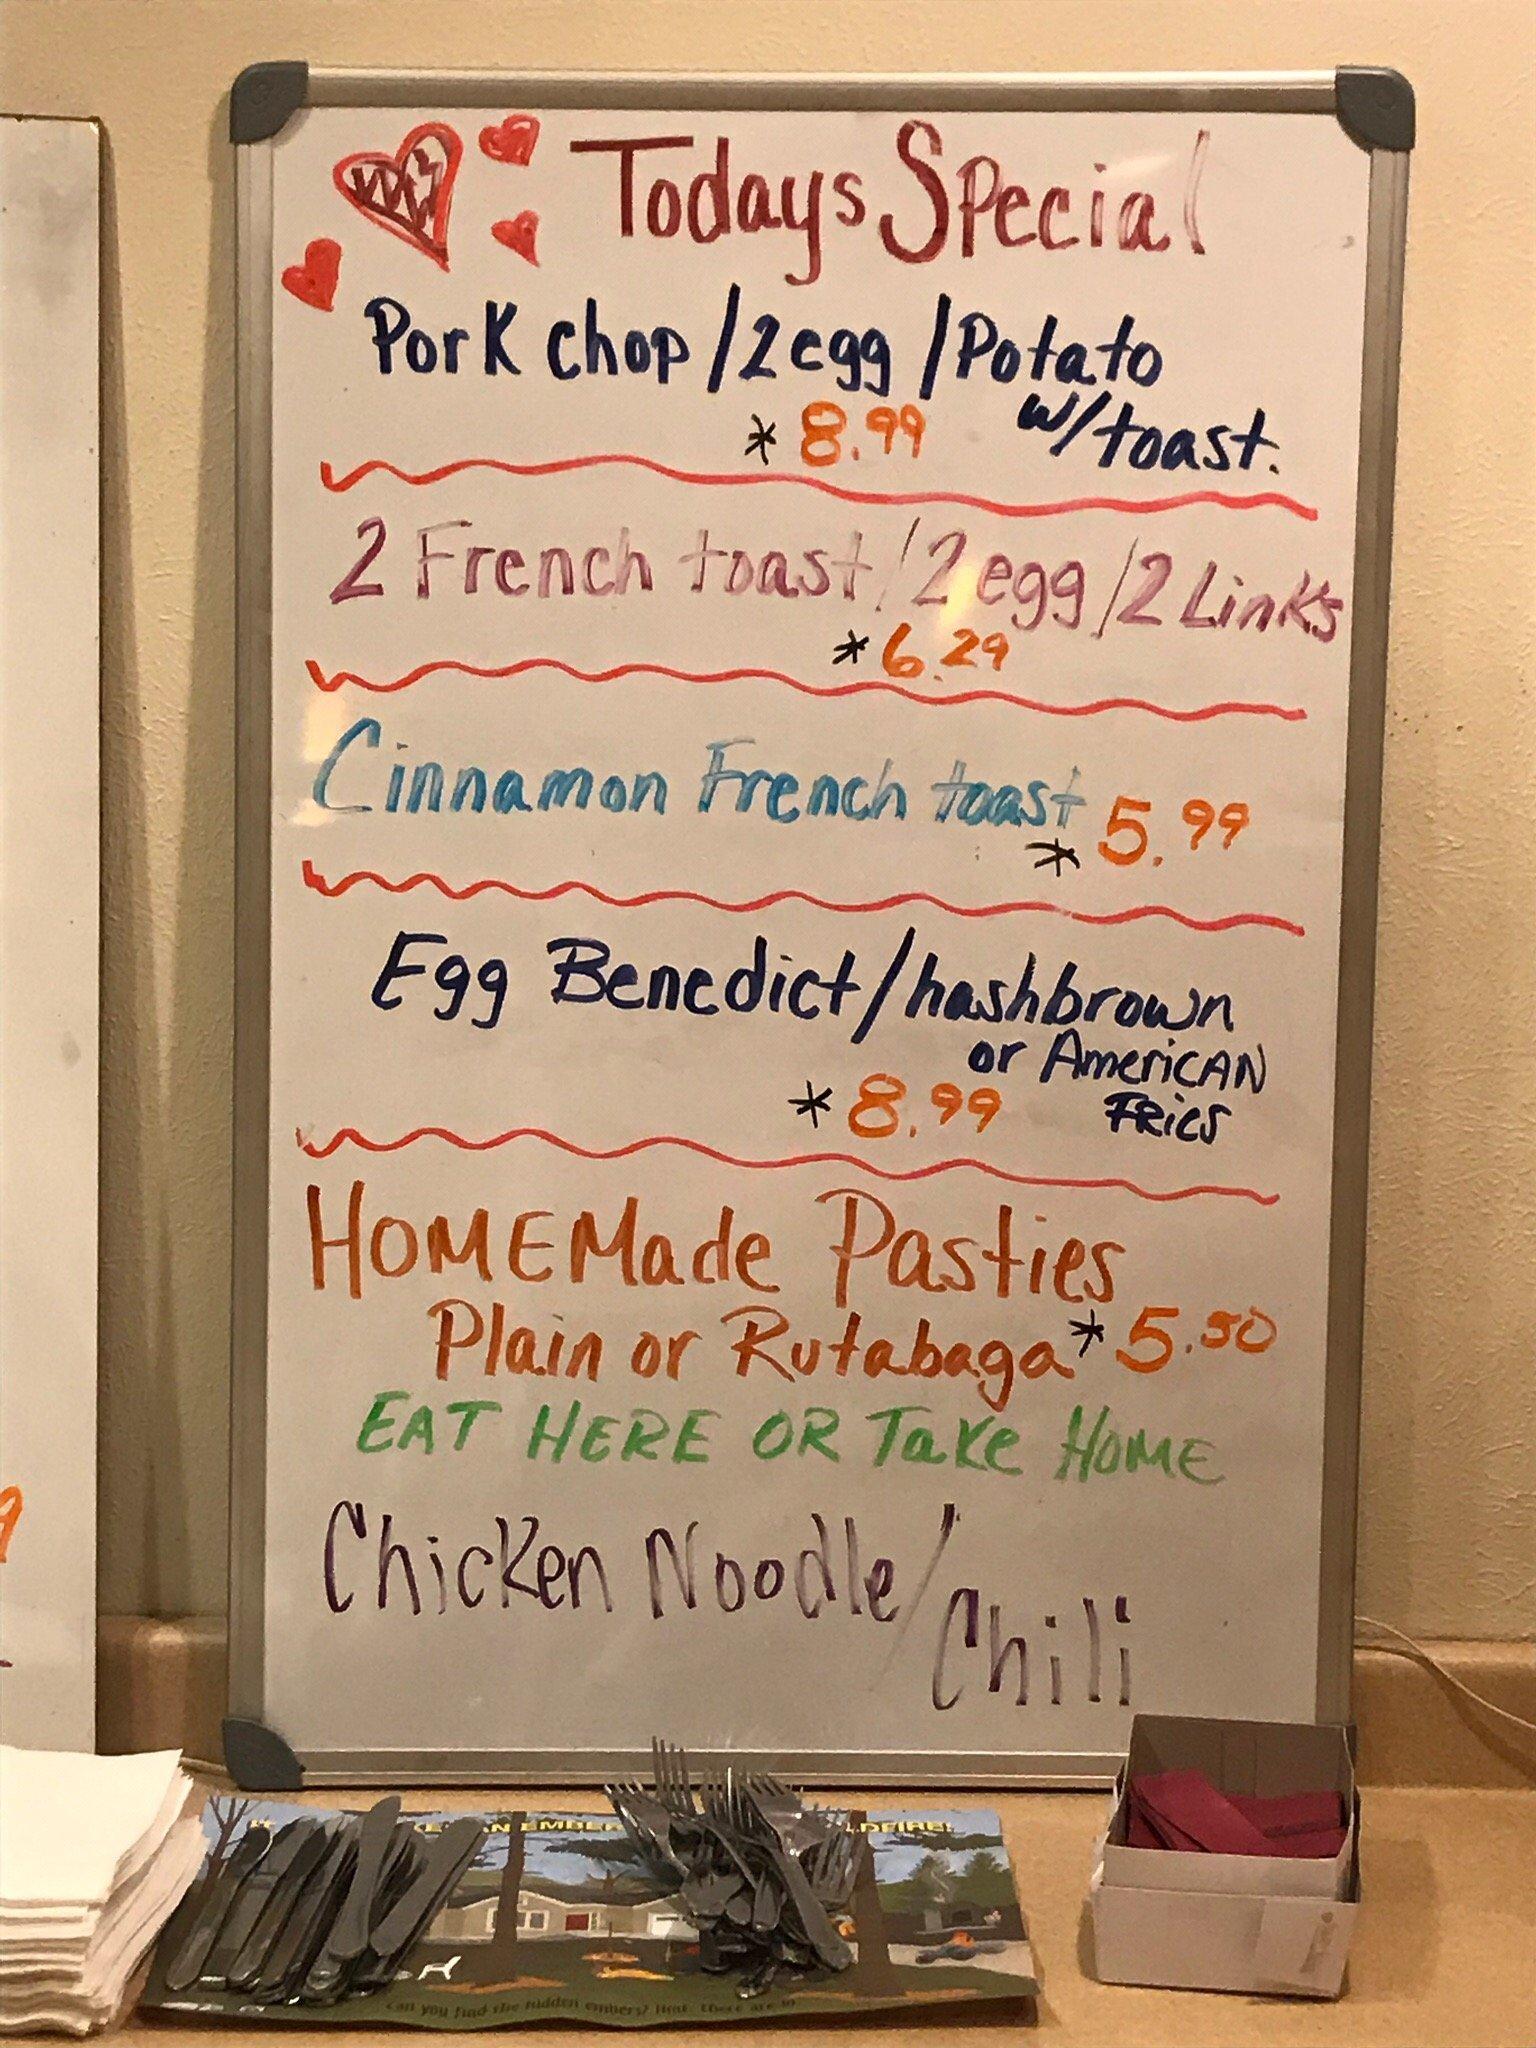 Todays Special
Pork chop / 2 egg / Potato
w/toast.
* 8.99
2 French toast / 2 egg / 2 Links
* 6.29
Cinnamon French toast
* 5.99
Egg Benedict / hashbrown
or AmericAN
FRies
* 8.99
HOMEMade Pasties
Plain or Rutabaga * 5.50
EAT HERE OR Take HOME
Chicken Noodle /
Chili
EMBER
LDFIRE!
Can you find the hidden embers? Hint: there are 10